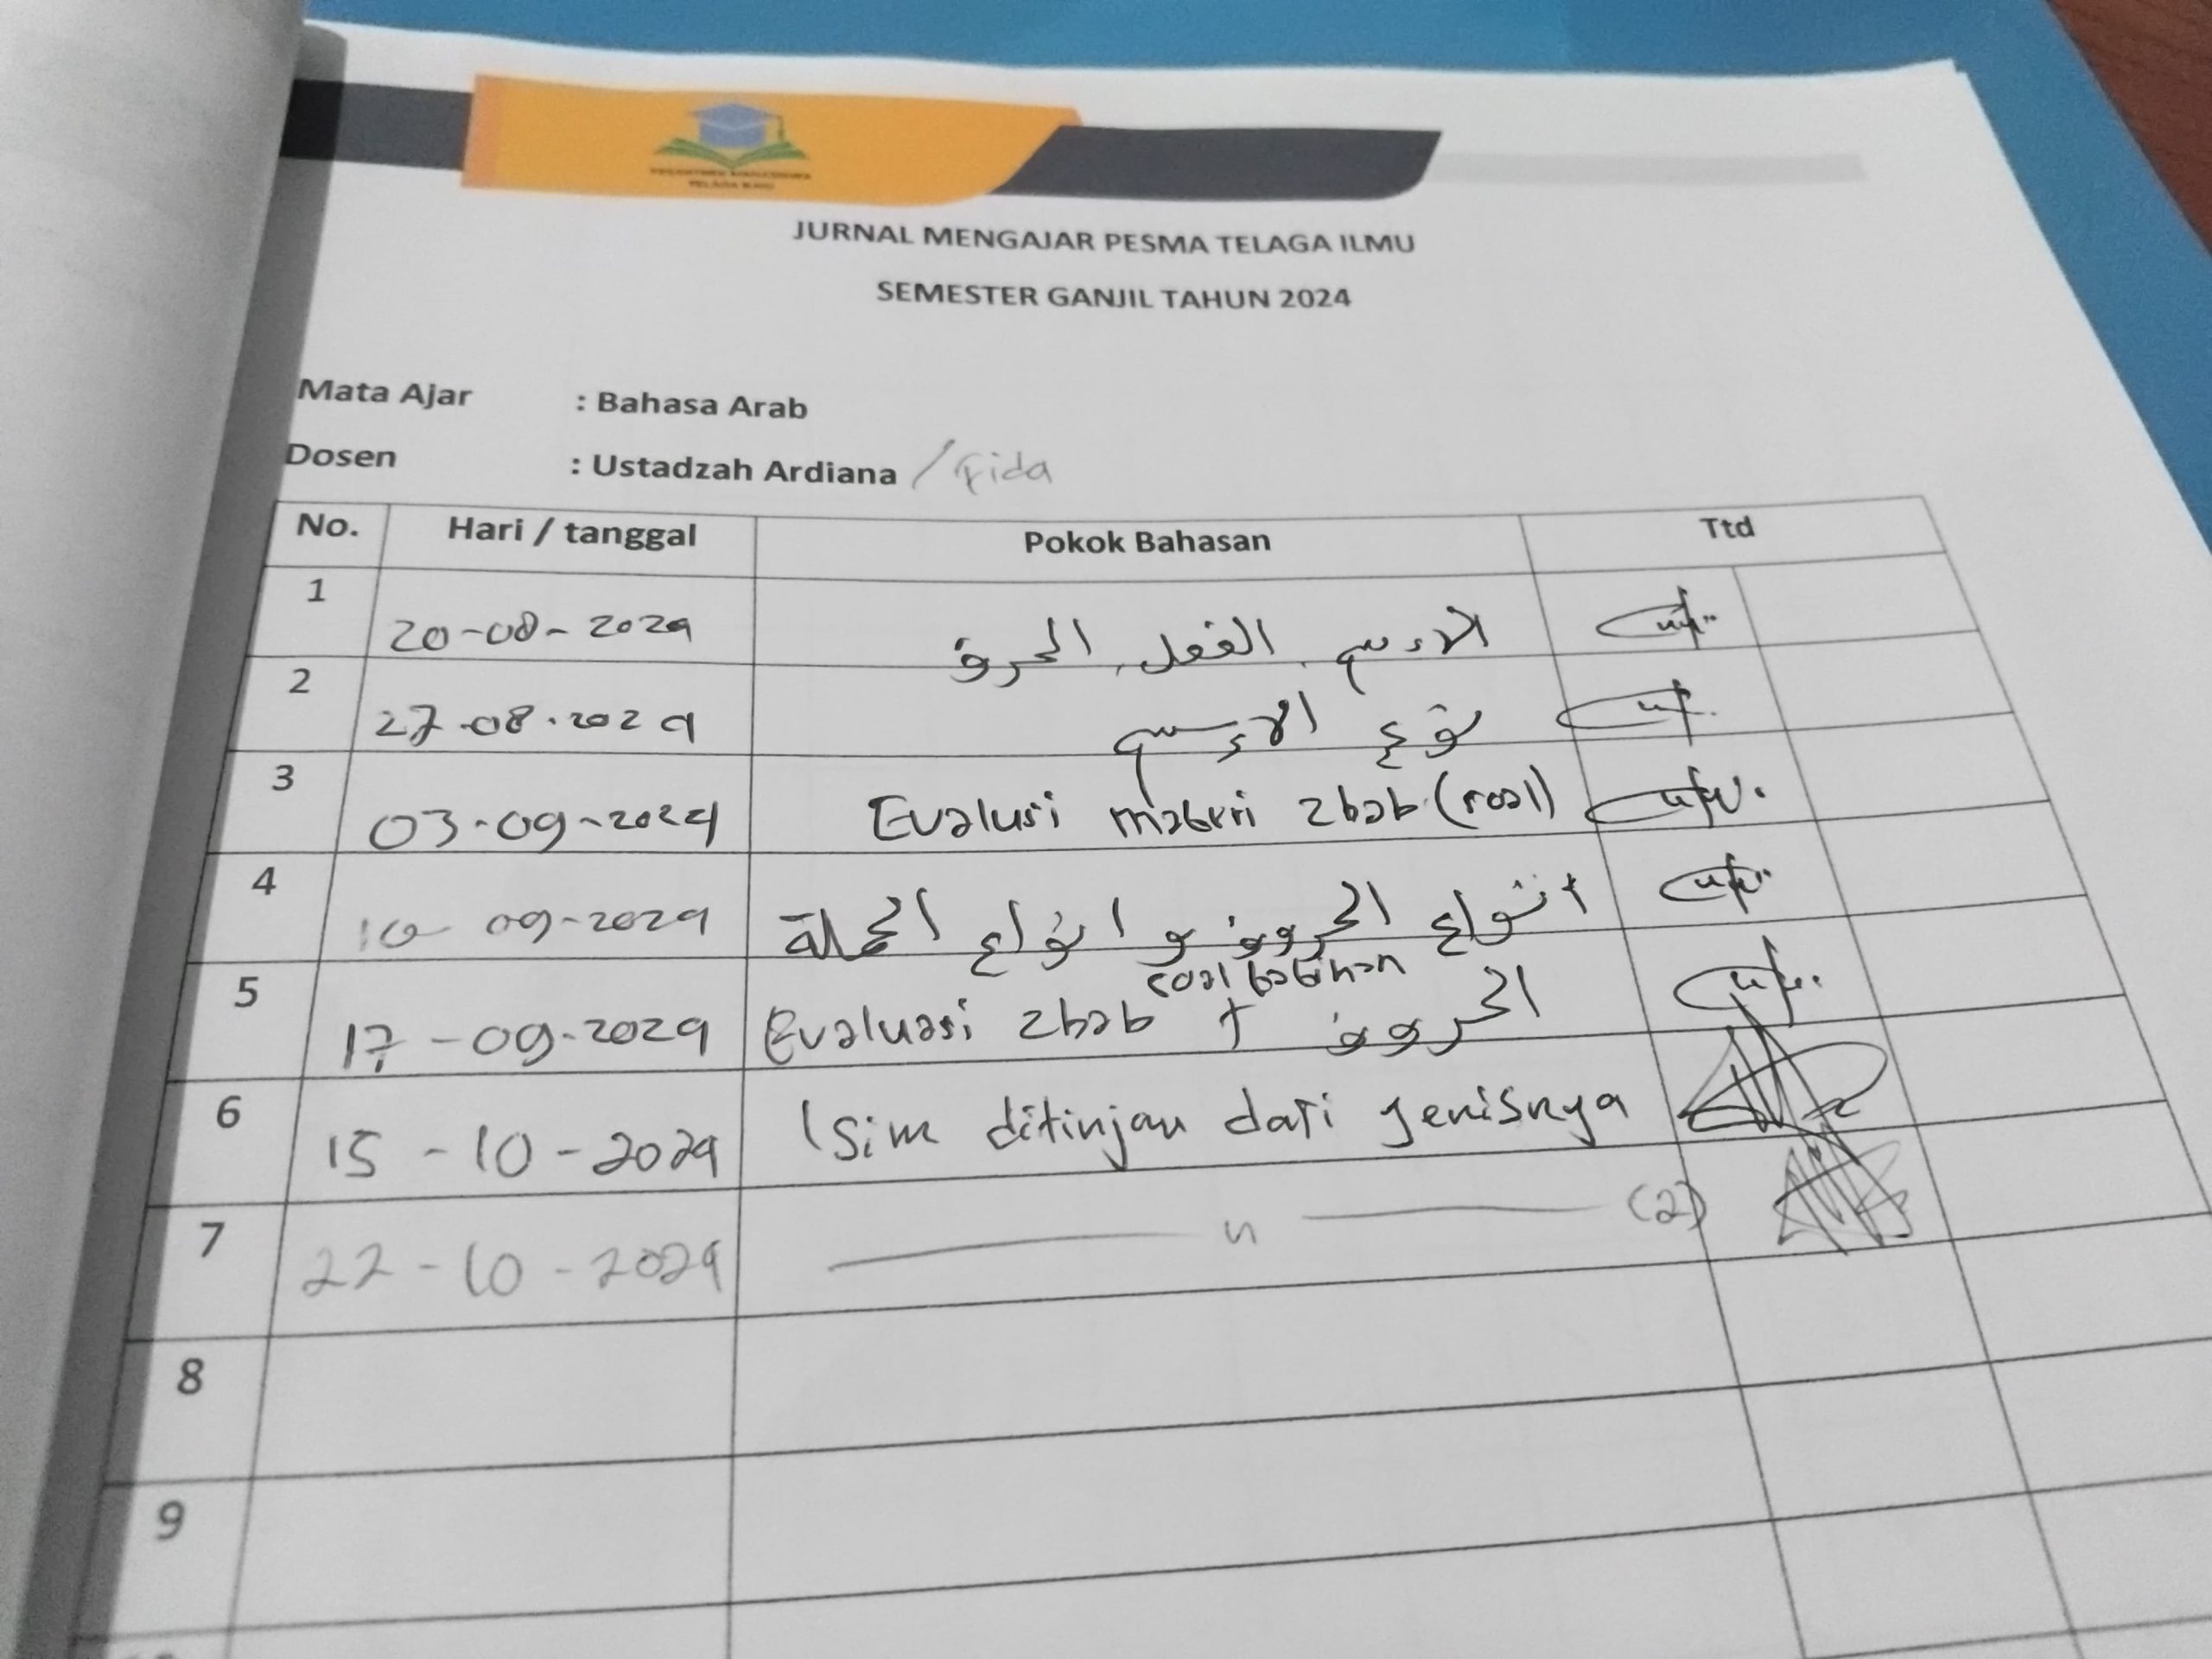 JURNAL MENGAJAR PESMA TELAGA ILMU
SEMESTER GANJIL TAHUN 2024
Mata Ajar : Bahasa Arab
Dosen : Ustadzah Ardiana / Fida
No. Hari / tanggal Pokok Bahasan Ttd
1 20-08-2024 الاسم, الفعل, الحرف
2 27-08-2024 نوع الاسم
3 03-09-2024 Evalusi materi 2 bab (soal)
4 10-09-2024 انواع الحروف و انواع الجملة
soal latihan
5 17-09-2024 Evaluasi 2 bab + الحروف
6 15-10-2024 Isim ditinjau dari jenisnya
7 22-10-2024 —— 〃 —— (2)
8
9